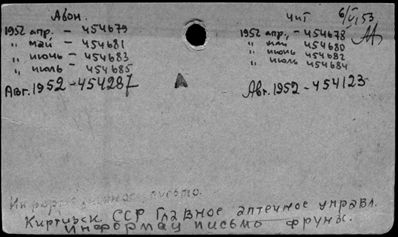 Абон.
1952 апр. - 454679
" май - 454681
" июнь - 454683
" июль - 454685
Авг. 1952 - 454287
Чит 6/VI 53
1952 апр. - 454678
" май 454680
" июнь 454682
" июль 454684
Авг. 1952 - 454123
письмо.
Киргизск ССР Главное аптечное управл.
Информац письмо Фрунз.